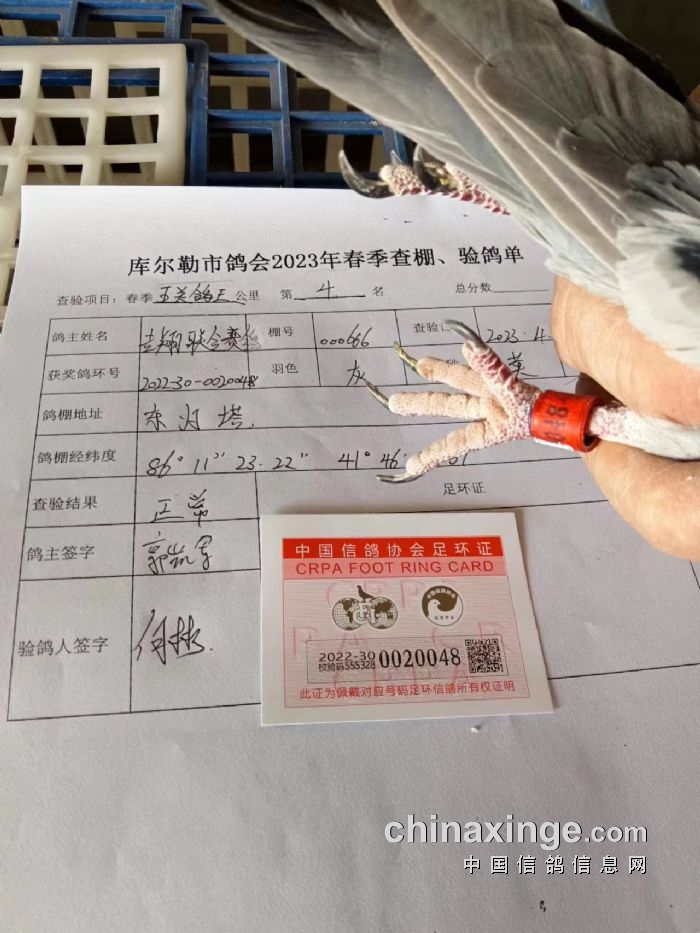 库尔勒市鸽会2023年春季查棚、验鸽单
查验项目：春季五关鸽王公里 第 4 名 总分数
鸽主姓名 翔联合赛 棚号 000666 查验 2023.4
获奖鸽环号 2022-30-0020048 羽色 灰
鸽棚地址 东灯塔.
鸽棚经纬度 86° 11" 23.22" 41° 46'
查验结果 正常 足环证
鸽主签字
验鸽人签字 何彬.
中国信鸽协会足环证
CRPA FOOT RING CARD
CRPA
2022-30
校验码555328 0020048
此证为佩戴对应号码足环信鸽所有权证明
chinaxinge.com
中国信鸽信息网